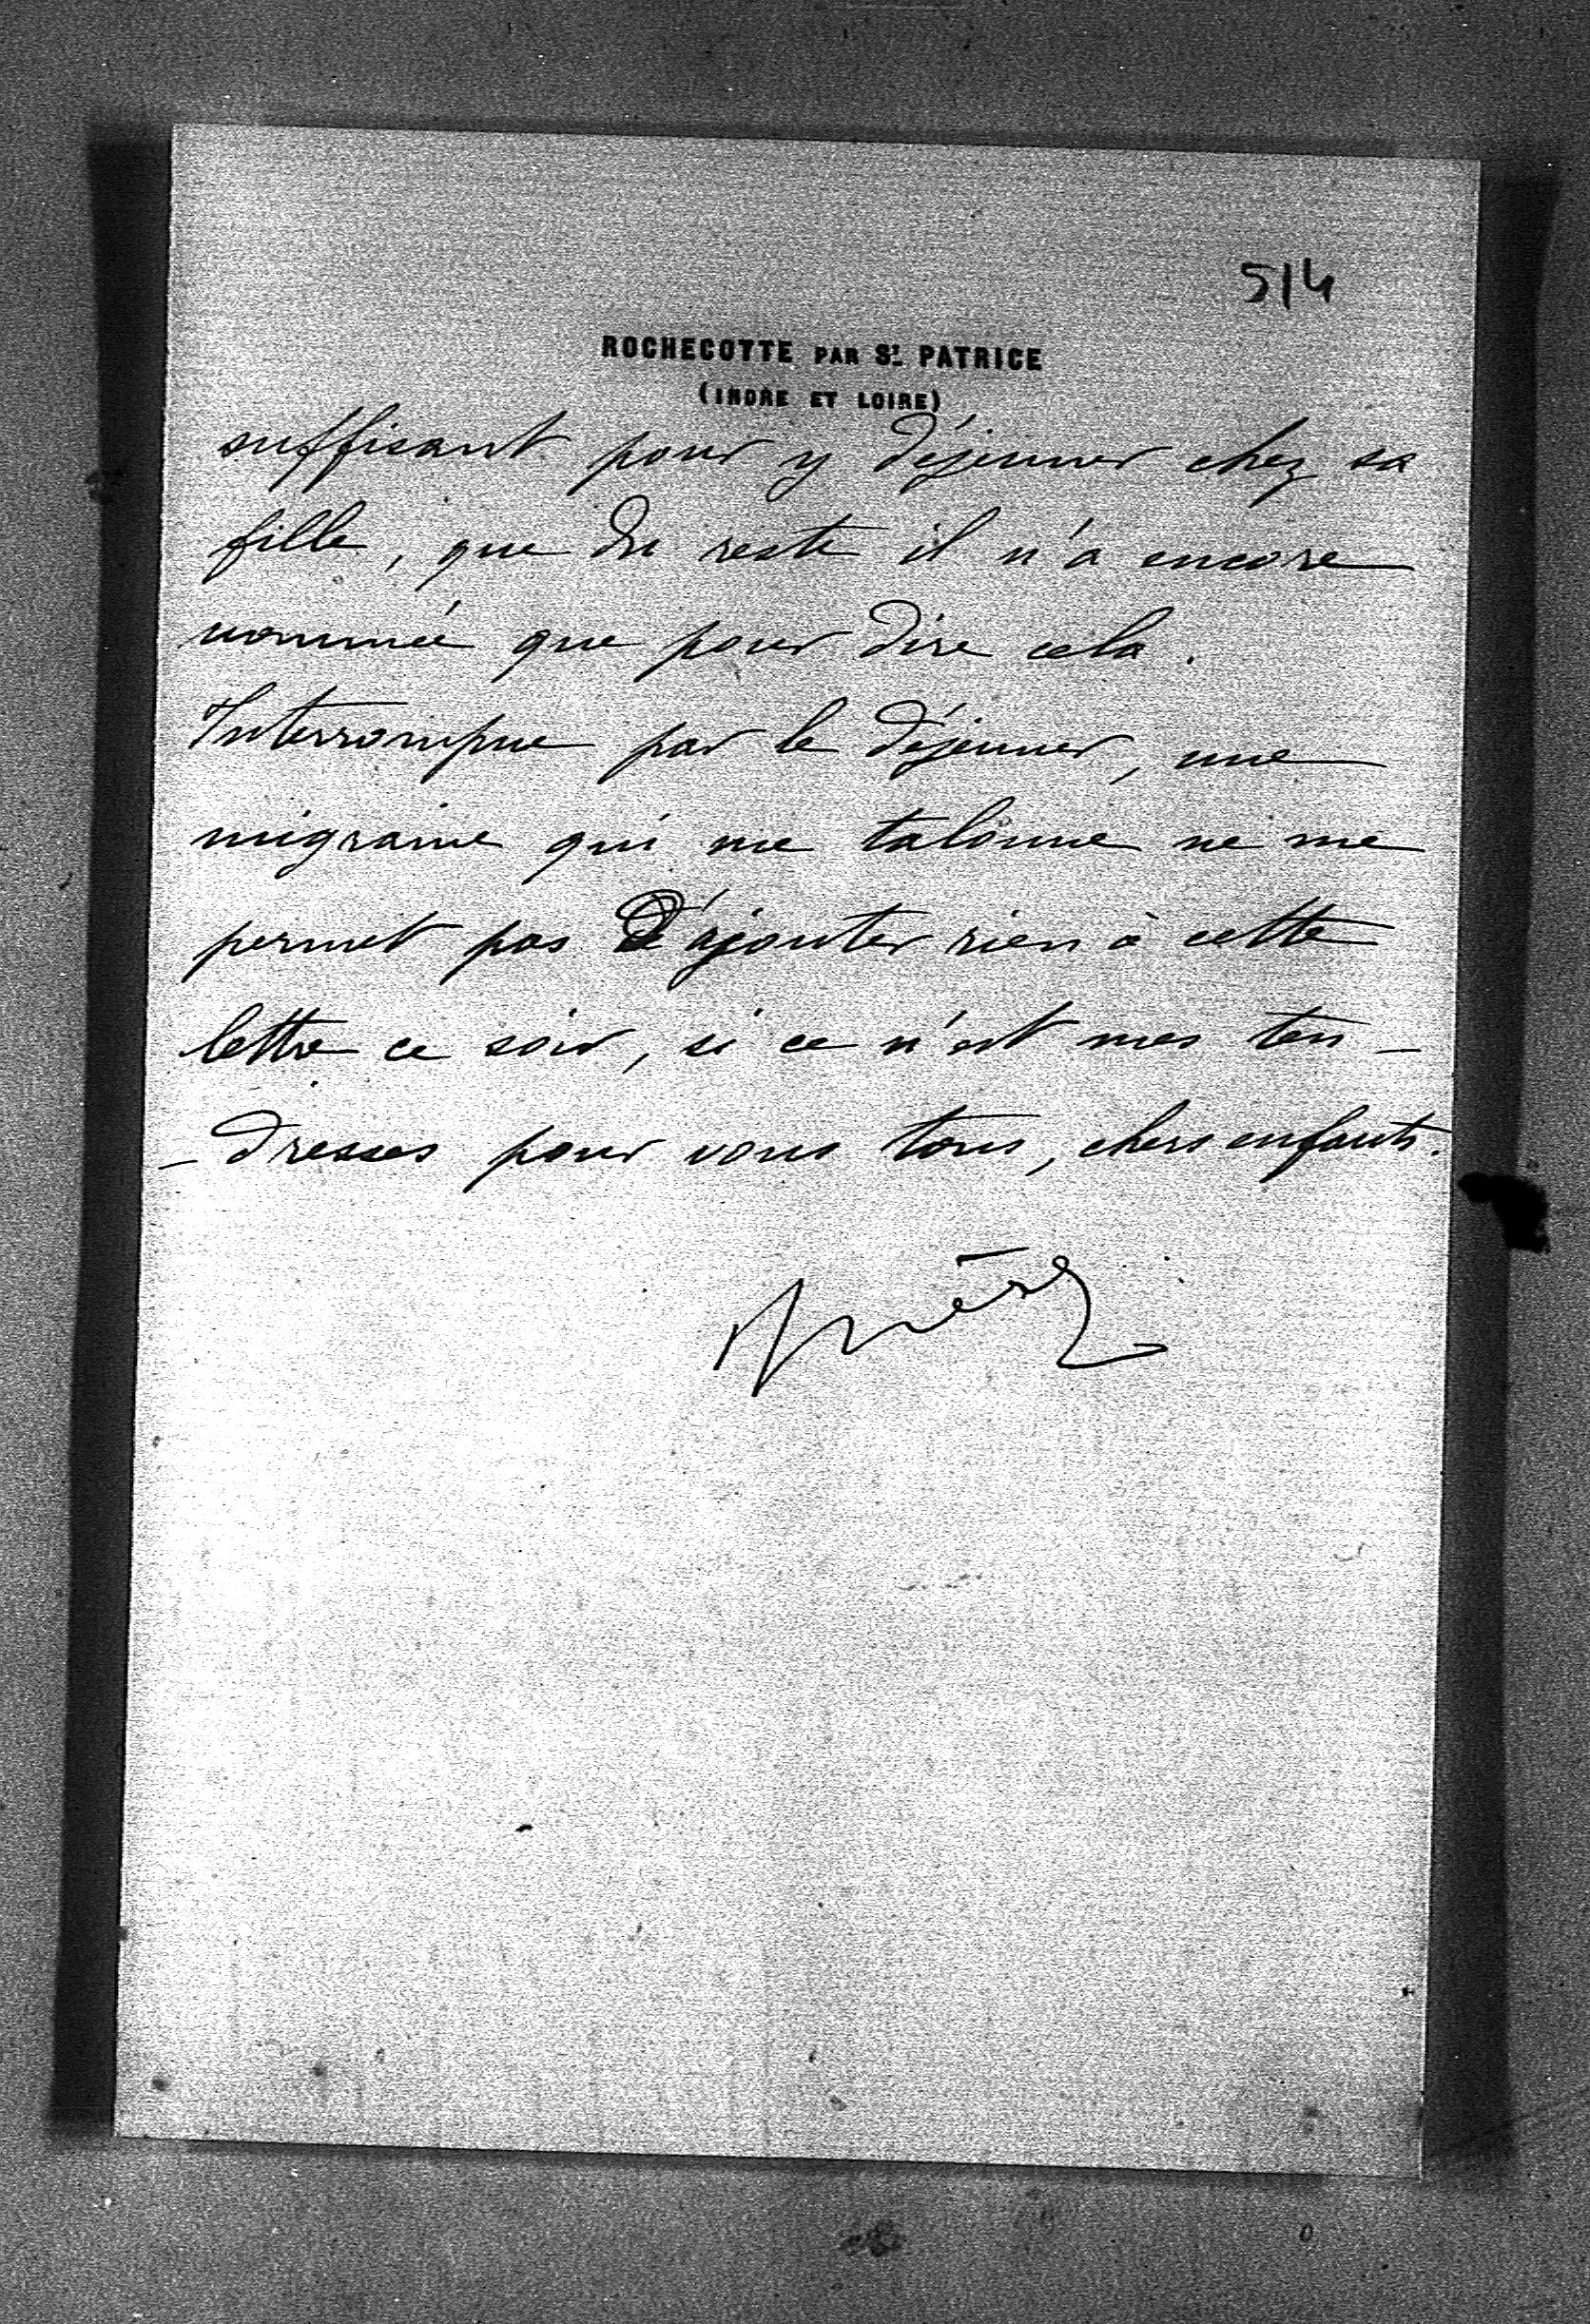 514
ROCHECOTTE PAR ST PATRICE
(INDRE ET LOIRE)
suffisant pour y déjeuner chez sa
fille, que du reste il n'a encore
nommée que pour dire cela.
Interrompue par le déjeuner, une
migraine qui me talonne ne me
permet pas d'ajouter rien à cette
lettre ce soir, si ce n'est mes ten-
-dresses pour vous tous, chers enfants.
Mère